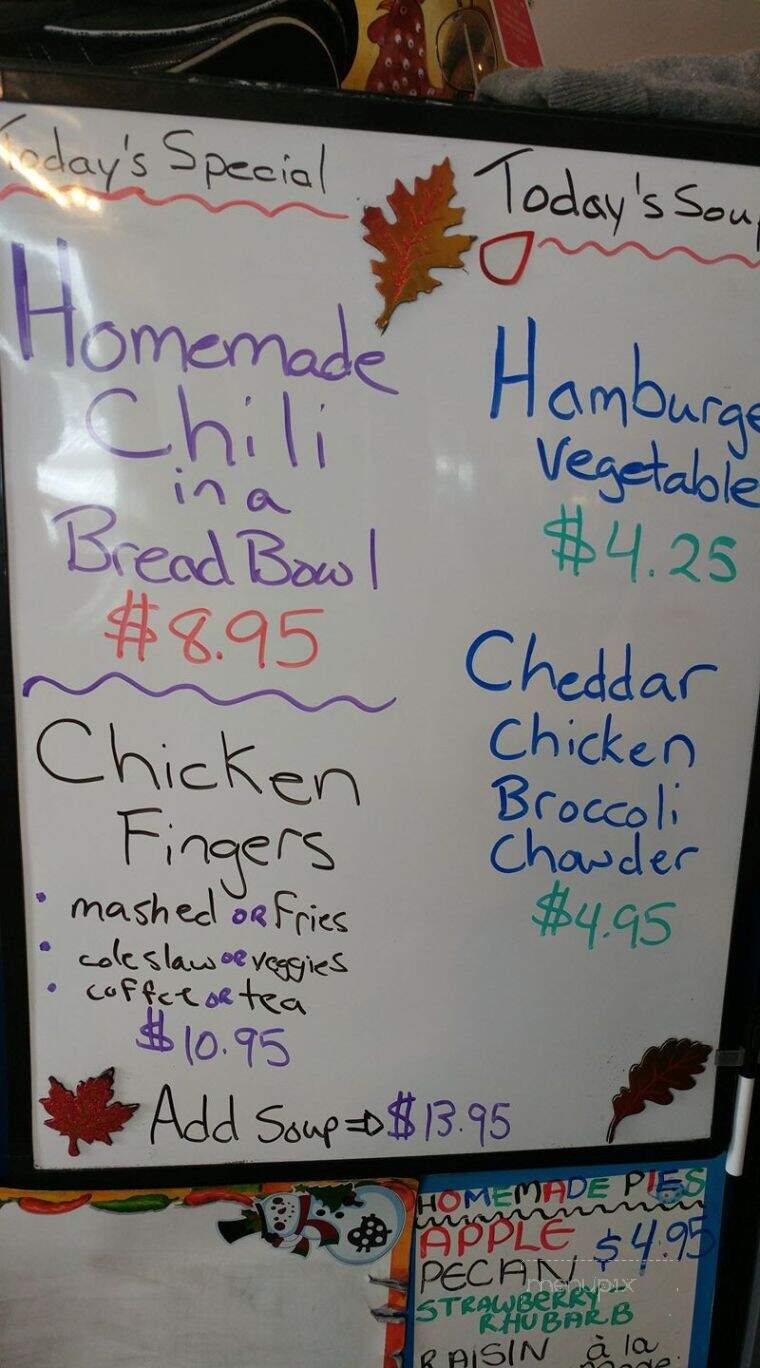 Today's Special
Homemade
Chili
in a
Bread Bowl
$8.95
Chicken
Fingers
• mashed OR Fries
• coleslaw OR veggies
• coffee OR tea
$10.95
Add Soup ⇒ $13.95
Today's Sou
Hamburge
Vegetable
$4.25
Cheddar
Chicken
Broccoli
Chowder
$4.95
HOMEMADE PIES
APPLE $4.95
PECAN
STRAWBERRY-
RHUBARB
RAISIN à la
menupix